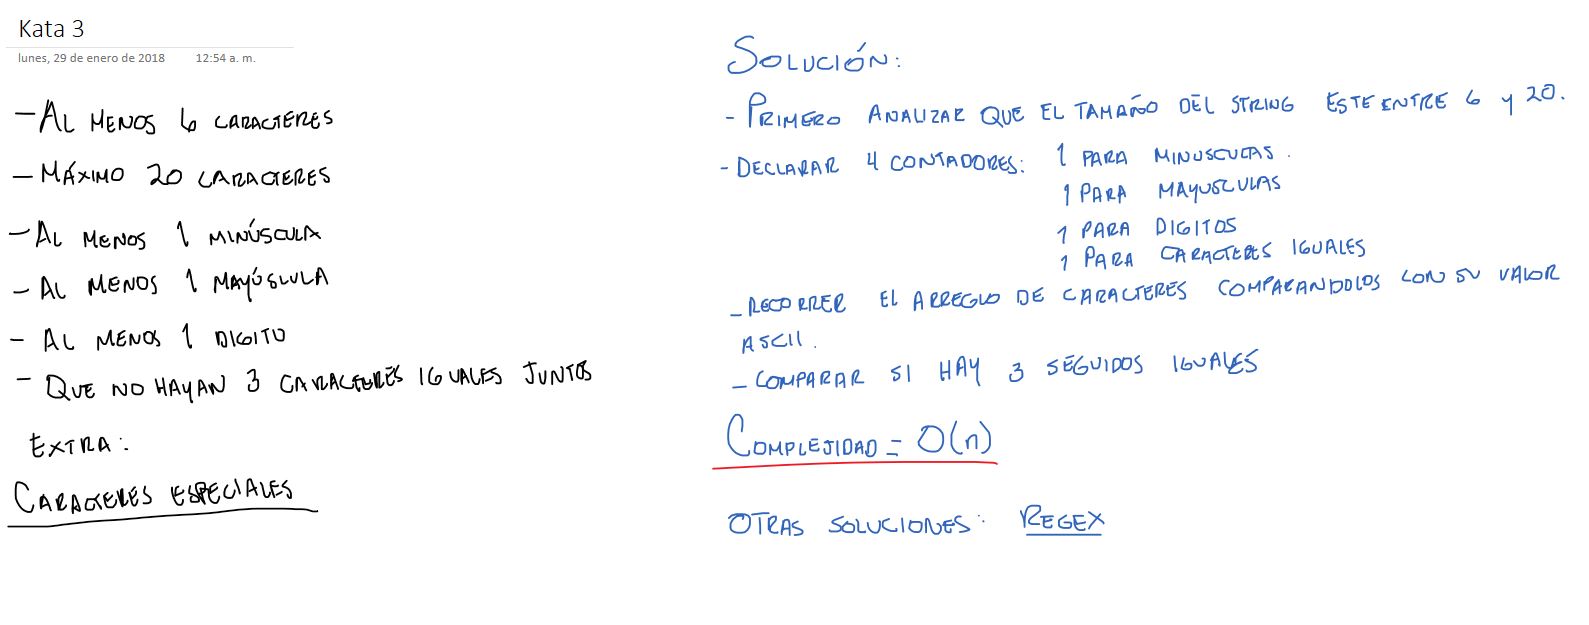 Kata 3
lunes, 29 de enero de 2018 12:54 a. m.
- AL MENOS 6 CARACTERES
- MÁXIMO 20 CARACTERES
- AL MENOS 1 MINÚSCULA
- AL MENOS 1 MAYÚSLULA
- AL MENOS 1 DIGITO
- QUE NO HAYAN 3 CARACTERES IGUALES JUNTOS
EXTRA:
CARACTERES ESPECIALES
SOLUCIÓN:
- PRIMERO ANALIZAR QUE EL TAMAÑO DEL STRING ESTE ENTRE 6 y 20.
- DECLARAR 4 CONTADORES: 1 PARA MINUSCULAS.
1 PARA MAYUSCULAS
1 PARA DIGITOS
1 PARA CARACTERES IGUALES
- RECORRER EL ARREGLO DE CARACTERES COMPARANDOLOS CON SU VALOR
ASCII.
- COMPARAR SI HAY 3 SEGUIDOS IGUALES
COMPLEJIDAD = O(n)
OTRAS SOLUCIONES: REGEX